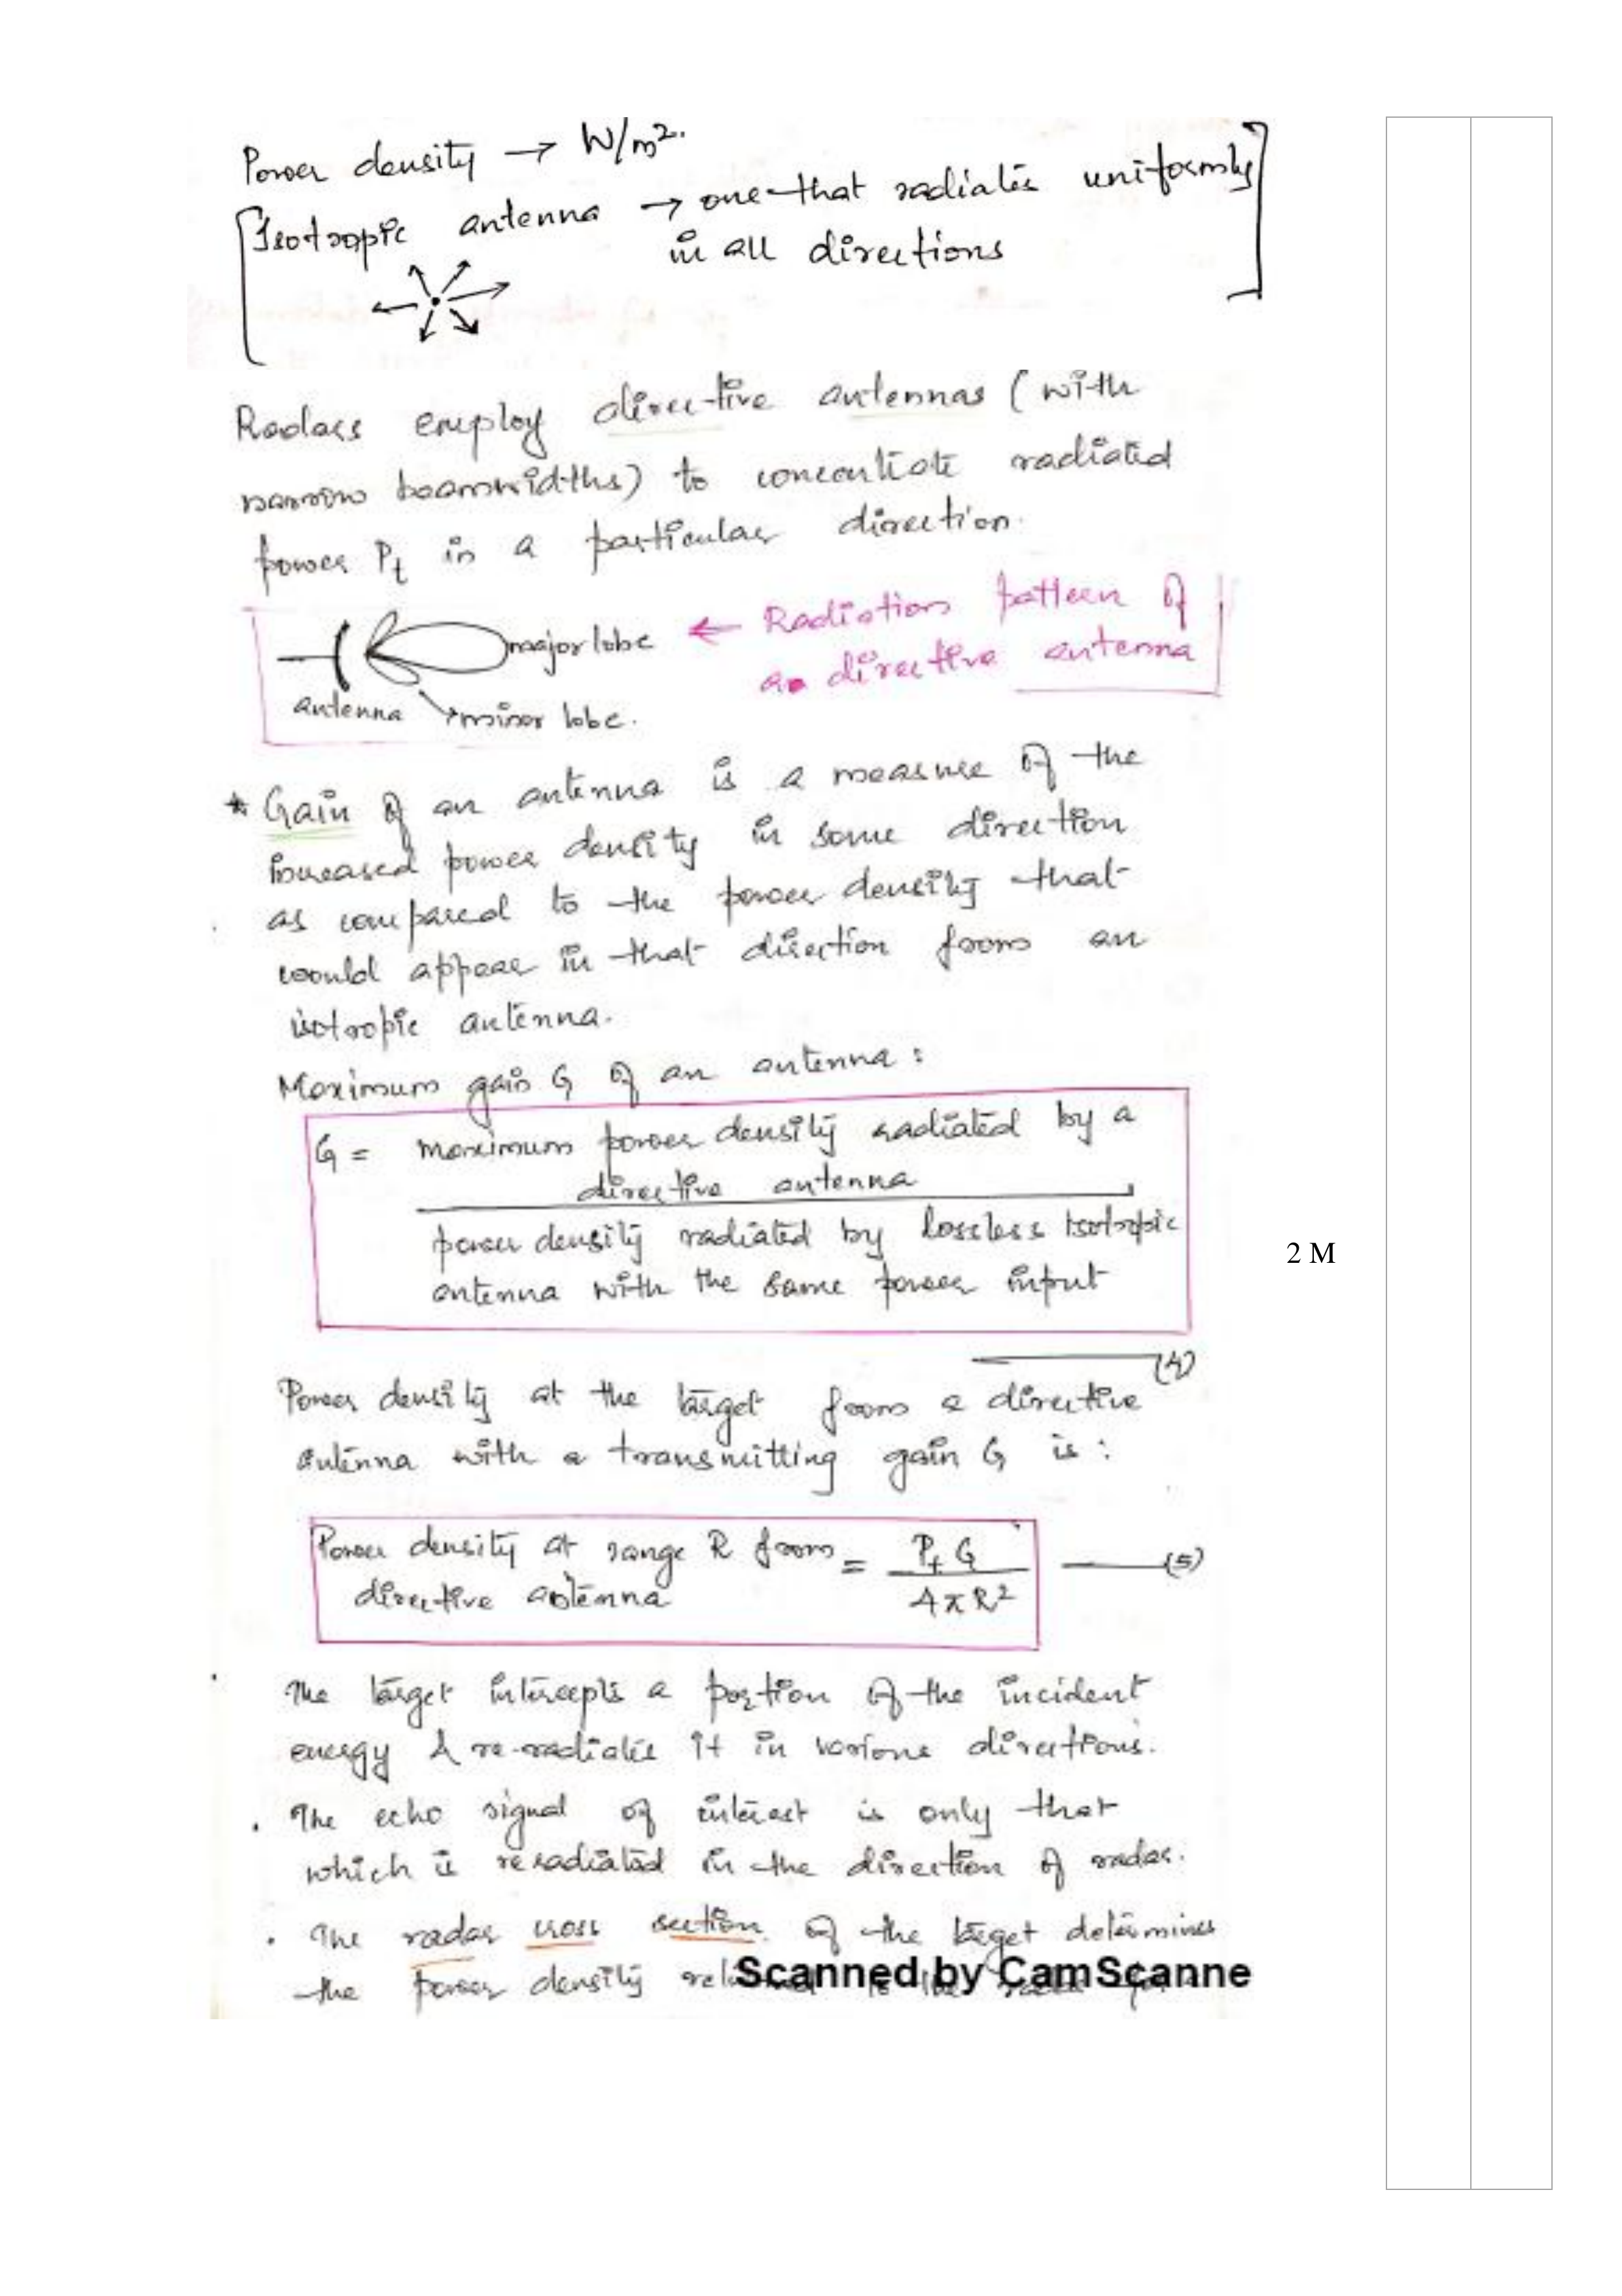 Power density → W/m².
[Isotropic antenna → one that radiates uniformly
in all directions]
Radars employ directive antennas (with
narrow beamwidths) to concentrate radiated
power Pt in a particular direction.
major lobe ← Radiation pattern of
a directive antenna
antenna minor lobe.
* Gain of an antenna is a measure of the
increased power density in some direction
as compared to the power density that
would appear in that direction from an
isotropic antenna.
Maximum gain G of an antenna :
G = maximum power density radiated by a
directive antenna
power density radiated by lossless isotropic
antenna with the same power input
2 M
(4)
Power density at the target from a directive
antenna with a transmitting gain G is :
Power density at range R from directive antenna = Pt G / 4πR² — (5)
The target intercepts a portion of the incident
energy & re-radiates it in various directions.
. The echo signal of interest is only that
which is reradiated in the direction of radar.
. The radar cross section of the target determines
the power density
Scanned by CamScanne